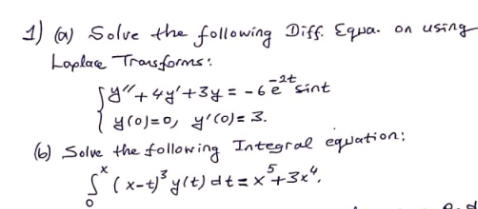 1) (a) Solve the following Diff. Equa. on using
Laplace Transforms:
{ y'' + 4y' + 3y = -6 e^{-2t} sint
{ y(0)=0, y'(0)= 3.
(b) Solve the following Integral equation:
∫_0^x (x-t)^3 y(t) dt = x^5 + 3x^4.